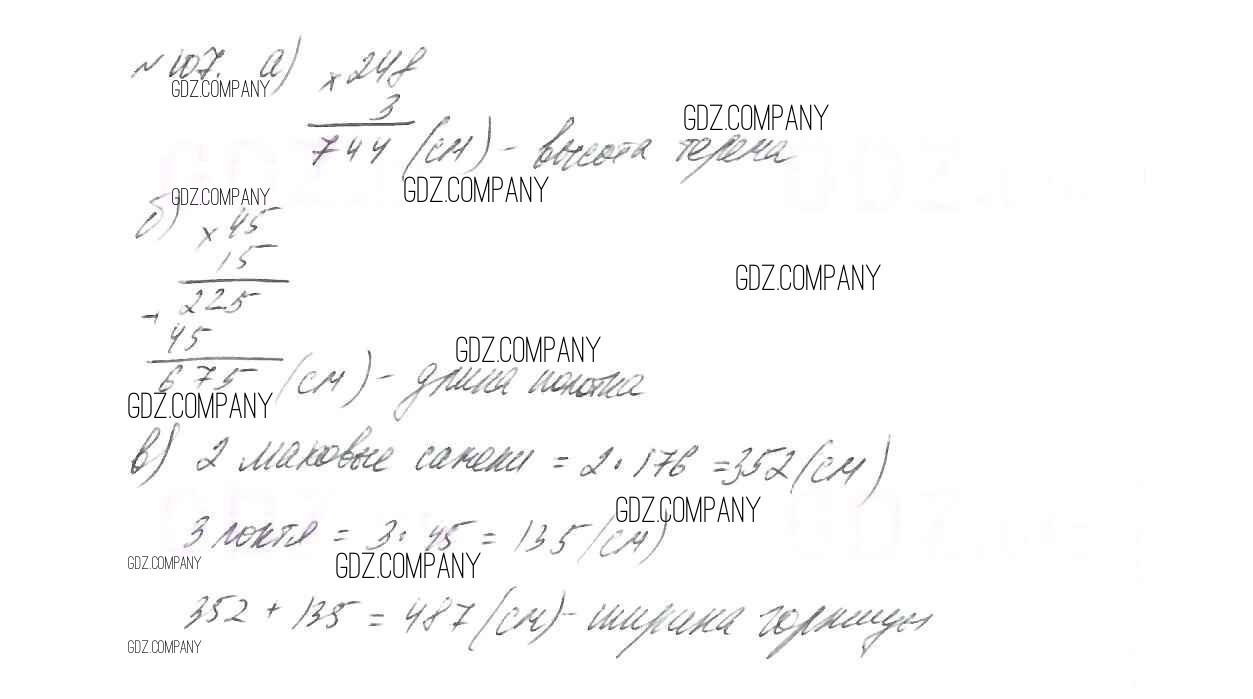 № 107. а) × 248
GDZ.COMPANY
3
GDZ.COMPANY
744 (см) – высота терема
GDZ.COMPANY
GDZ.COMPANY
б) × 45
15
GDZ.COMPANY
225
+
45
GDZ.COMPANY
675 (см) – длина полотна
GDZ.COMPANY
в) 2 маховые сажени = 2 · 176 = 352 (см)
GDZ.COMPANY
3 локтя = 3 · 45 = 135 (см)
GDZ.COMPANY
GDZ.COMPANY
352 + 135 = 487 (см) – ширина горницы
GDZ.COMPANY